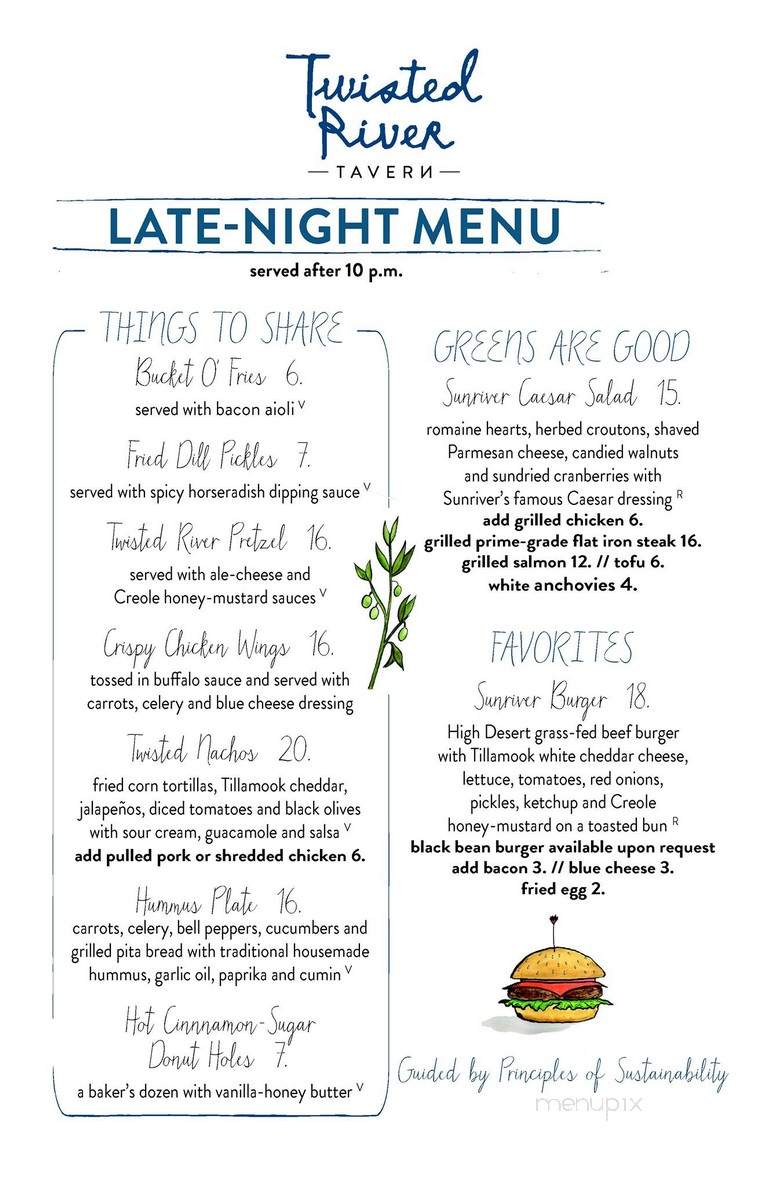 Twisted
River
TAVERN
LATE-NIGHT MENU
served after 10 p.m.
THINGS TO SHARE
Bucket O' Fries 6.
served with bacon aioli V
Fried Dill Pickles 7.
served with spicy horseradish dipping sauce V
Twisted River Pretzel 16.
served with ale-cheese and
Creole honey-mustard sauces V
Crispy Chicken Wings 16.
tossed in buffalo sauce and served with
carrots, celery and blue cheese dressing
Twisted Nachos 20.
fried corn tortillas, Tillamook cheddar,
jalapeños, diced tomatoes and black olives
with sour cream, guacamole and salsa V
add pulled pork or shredded chicken 6.
Hummus Plate 16.
carrots, celery, bell peppers, cucumbers and
grilled pita bread with traditional housemade
hummus, garlic oil, paprika and cumin V
Hot Cinnnamon-Sugar
Donut Holes 7.
a baker's dozen with vanilla-honey butter V
GREENS ARE GOOD
Sunriver Caesar Salad 15.
romaine hearts, herbed croutons, shaved
Parmesan cheese, candied walnuts
and sundried cranberries with
Sunriver's famous Caesar dressing R
add grilled chicken 6.
grilled prime-grade flat iron steak 16.
grilled salmon 12. // tofu 6.
white anchovies 4.
FAVORITES
Sunriver Burger 18.
High Desert grass-fed beef burger
with Tillamook white cheddar cheese,
lettuce, tomatoes, red onions,
pickles, ketchup and Creole
honey-mustard on a toasted bun R
black bean burger available upon request
add bacon 3. // blue cheese 3.
fried egg 2.
Guided by Principles of Sustainability
menupix